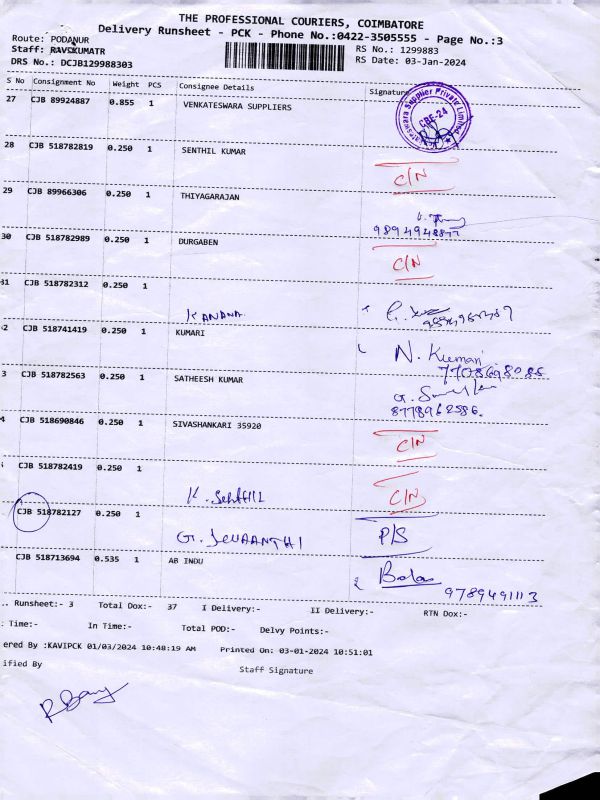 THE PROFESSIONAL COURIERS, COIMBATORE
Delivery Runsheet - PCK - Phone No.:0422-3505555 - Page No.:3
Route: PODANUR
RS No.: 1299883
Staff: RAVIKUMATR
RS Date: 03-Jan-2024
DRS No.: DCJB129988303
S No Consignment No Weight PCS Consignee Details Signature
27 CJB 89924887 0.855 1 VENKATESWARA SUPPLIERS
CBE-24
28 CJB 518782819 0.250 1 SENTHIL KUMAR
C/N
29 CJB 89966306 0.250 1 THIYAGARAJAN
9894948877
30 CJB 518782989 0.250 1 DURGABEN
C/N
31 CJB 518782312 0.250 1
KANANA
2 CJB 518741419 0.250 1 KUMARI
N. Kumari
7708698086
3 CJB 518782563 0.250 1 SATHEESH KUMAR
8778962586.
4 CJB 518690846 0.250 1 SIVASHANKARI 35920
C/N
CJB 518782419 0.250 1
K. Senthil C/N
CJB 518782127 0.250 1
G. JEVAANTHI P/S
CJB 518713694 0.535 1 AB INDU
Bala
9789491113
.. Runsheet:- 3 Total Dox:- 37 I Delivery:- II Delivery:- RTN Dox:-
: Time:- In Time:- Total POD:- Delvy Points:-
ered By :KAVIPCK 01/03/2024 10:48:19 AM Printed On: 03-01-2024 10:51:01
ified By Staff Signature